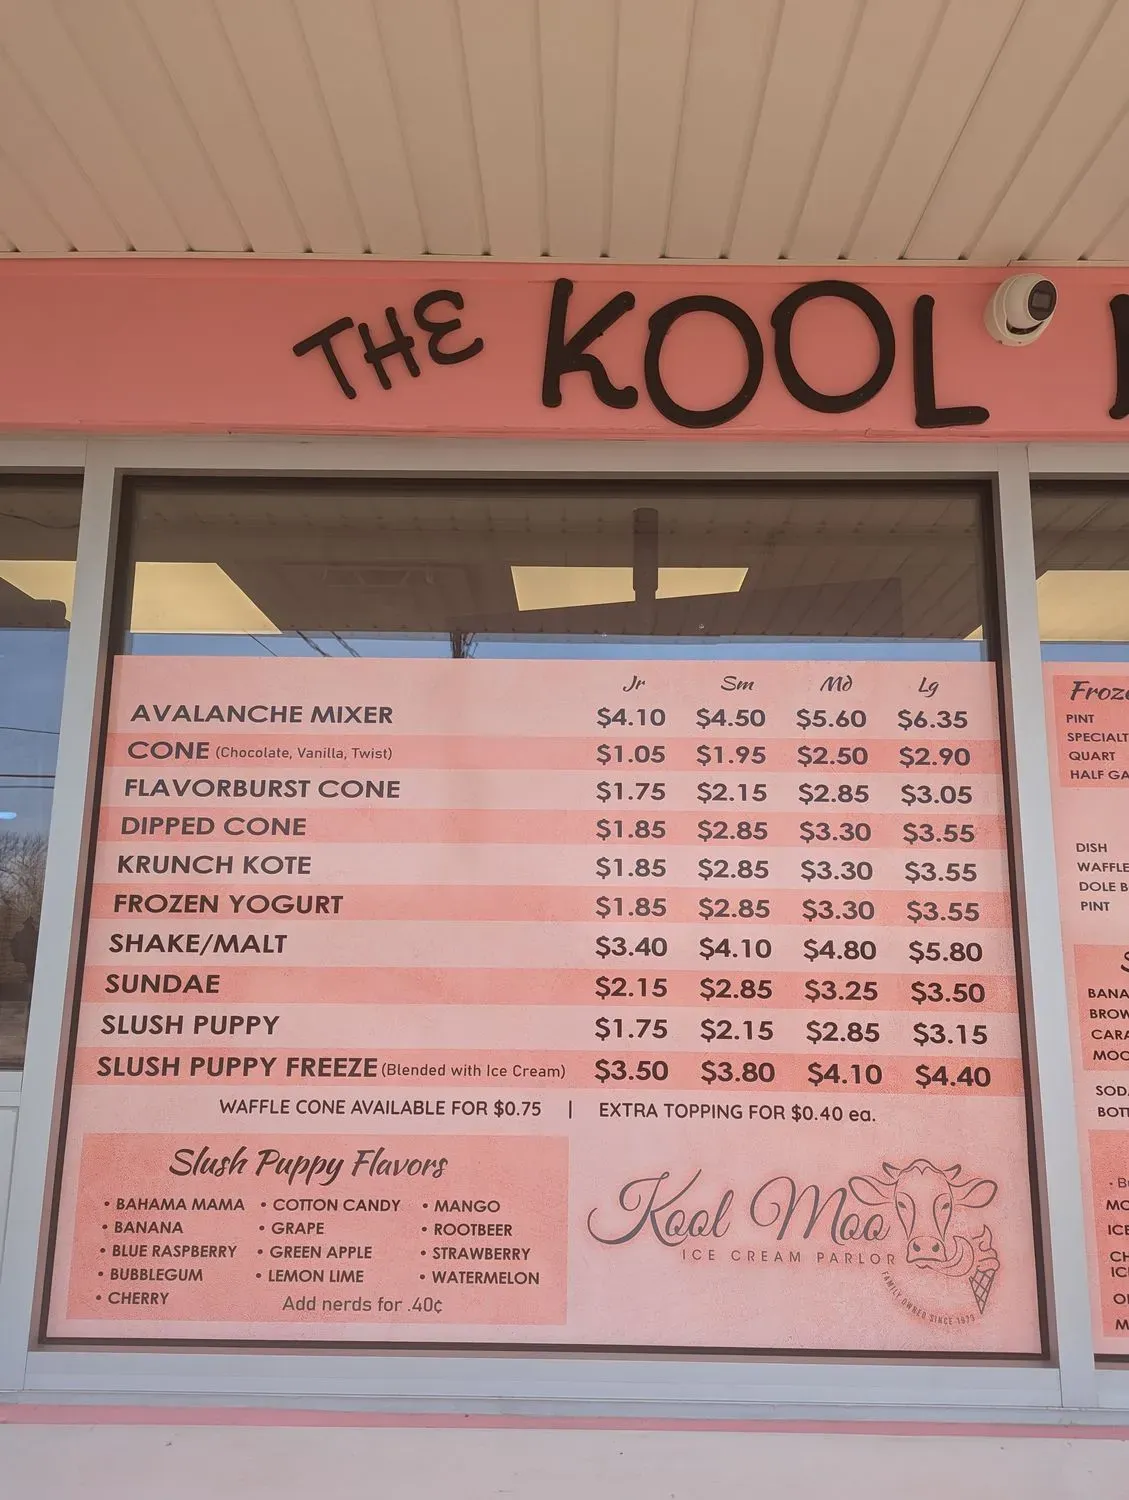 THE KOOL
Jr Sm Md Lg
AVALANCHE MIXER $4.10 $4.50 $5.60 $6.35
CONE (Chocolate, Vanilla, Twist) $1.05 $1.95 $2.50 $2.90
FLAVORBURST CONE $1.75 $2.15 $2.85 $3.05
DIPPED CONE $1.85 $2.85 $3.30 $3.55
KRUNCH KOTE $1.85 $2.85 $3.30 $3.55
FROZEN YOGURT $1.85 $2.85 $3.30 $3.55
SHAKE/MALT $3.40 $4.10 $4.80 $5.80
SUNDAE $2.15 $2.85 $3.25 $3.50
SLUSH PUPPY $1.75 $2.15 $2.85 $3.15
SLUSH PUPPY FREEZE (Blended with Ice Cream) $3.50 $3.80 $4.10 $4.40
WAFFLE CONE AVAILABLE FOR $0.75 | EXTRA TOPPING FOR $0.40 ea.
Slush Puppy Flavors
• BAHAMA MAMA • COTTON CANDY • MANGO
• BANANA • GRAPE • ROOTBEER
• BLUE RASPBERRY • GREEN APPLE • STRAWBERRY
• BUBBLEGUM • LEMON LIME • WATERMELON
• CHERRY Add nerds for .40¢
Kool Moo
ICE CREAM PARLOR
FAMILY OWNED SINCE 1973
PINT
QUART
DISH
PINT